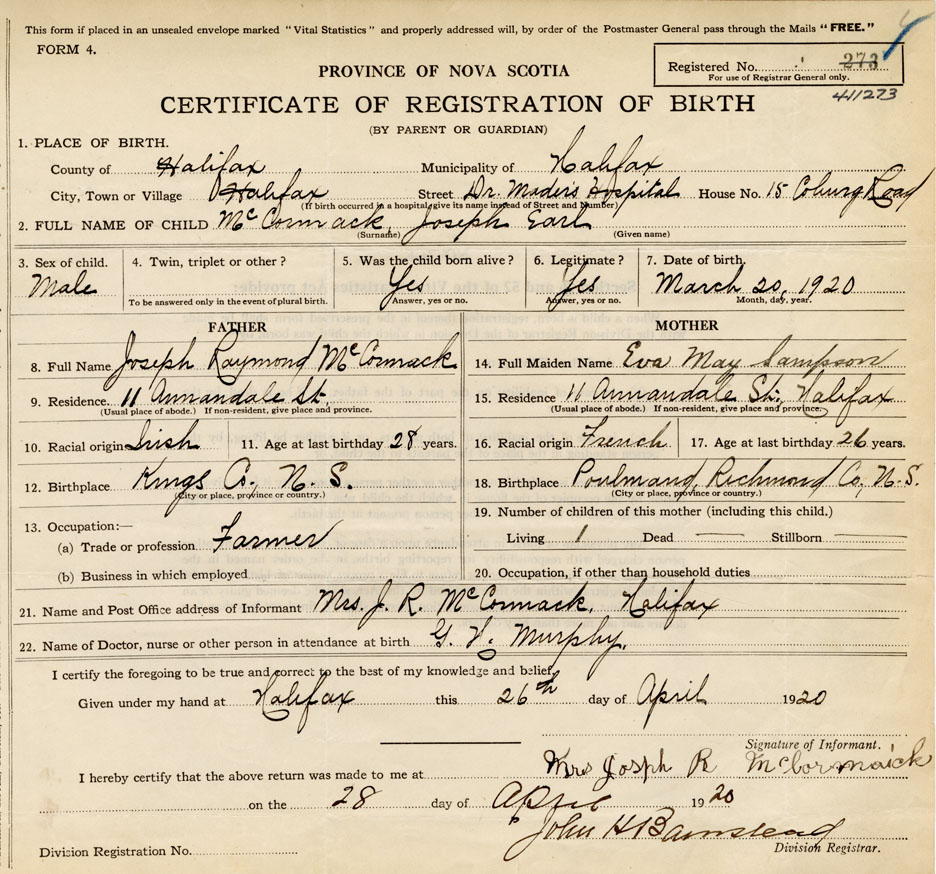 This form if placed in an unsealed envelope marked "Vital Statistics" and properly addressed will, by order of the Postmaster General pass through the Mails "FREE."
FORM 4.
PROVINCE OF NOVA SCOTIA
Registered No. 273
For use of Registrar General only.
411273
CERTIFICATE OF REGISTRATION OF BIRTH
(BY PARENT OR GUARDIAN)
1. PLACE OF BIRTH.
County of Halifax Municipality of Halifax
City, Town or Village Halifax Street Dr. Maders Hospital House No. 15 Coburg Road
(If birth occurred in a hospital give its name instead of Street and Number)
2. FULL NAME OF CHILD McCormack, Joseph Earl
(Surname) (Given name)
3. Sex of child. 4. Twin, triplet or other? 5. Was the child born alive? 6. Legitimate? 7. Date of birth.
Male Yes Yes March 20, 1920
To be answered only in the event of plural birth. Answer, yes or no. Answer, yes or no. Month, day, year.
FATHER
8. Full Name Joseph Raymond McCormack
9. Residence. 11 Annandale St.
(Usual place of abode.) If non-resident, give place and province.
10. Racial origin Irish 11. Age at last birthday 28 years.
12. Birthplace Kings Co., N. S.
(City or place, province or country.)
13. Occupation:—
(a) Trade or profession Farmer
(b) Business in which employed
MOTHER
14. Full Maiden Name Eva May Sampson
15. Residence 11 Annandale St., Halifax
(Usual place of abode.) If non-resident, give place and province.
16. Racial origin French 17. Age at last birthday 26 years.
18. Birthplace Poulmand, Richmond Co., N. S.
(City or place, province or country.)
19. Number of children of this mother (including this child.)
Living 1 Dead — Stillborn —
20. Occupation, if other than household duties
21. Name and Post Office address of Informant Mrs. J. R. McCormack, Halifax
22. Name of Doctor, nurse or other person in attendance at birth G. V. Murphy.
I certify the foregoing to be true and correct to the best of my knowledge and belief.
Given under my hand at Halifax this 26th day of April 1920
Signature of Informant.
Mrs Josph R McCormaick
I hereby certify that the above return was made to me at
on the 28 day of April 1920
John H Barnstead
Division Registration No. Division Registrar.